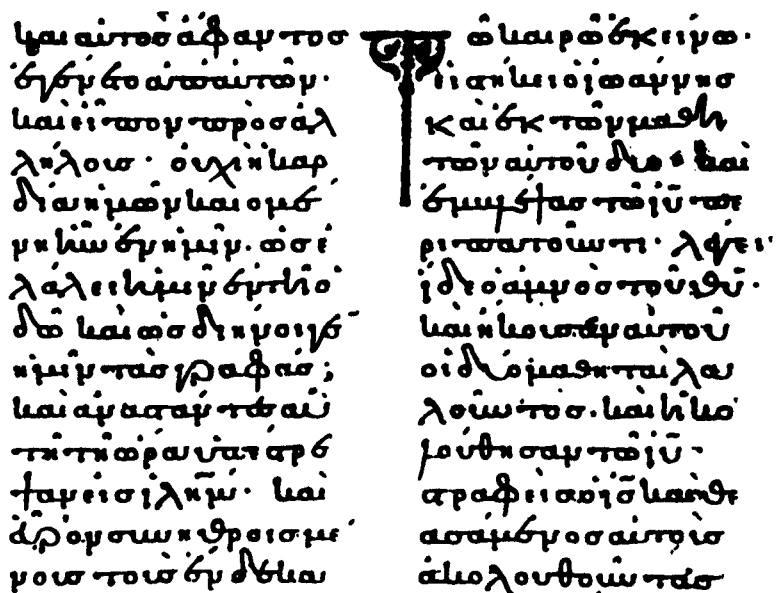 καὶ αὐτὸς ἄφαντος
ἐγένετο ἀπαὐτῶν·
καὶ εἶπον πρὸς ἀλ
λήλους· οὐχὶ ἡ καρ
δία ἡμῶν καιομέ
νη ἦν ἐν ἡμῖν· ὡς ἐ
λάλει ἡμῖν ἐν τῆ ὁ
δῶ καὶ ὡς διήνοιγε̄
ἡμῖν τὰς γραφάς;
καὶ ἀναστάντες αὐ
τῆ τῆ ὥρα ὑπέστρε
ψαν εἰς ἰλη̄μ· καὶ
εὗρον συνηθροισμέ
νους τοὺς ἕνδεκα
Τῶ καιρῶ ἐκείνω·
εἱστήκει ὁ ἰωάννης
καὶ ἐκ τῶν μαθη
τῶν αὐτοῦ δύο· καὶ
ἐμβλέψας τῶ ἰῡ πε
ριπατοῦντι· λέγει·
ἴδε ὁ ἀμνὸς τοῦ θῡ·
καὶ ἤκουσαν αὐτοῦ
οἱ δύο μαθηταὶ λα
λοῦντος· καὶ ἠκο
λούθησαν τῶ ἰῡ·
στραφεὶς ὁ ῑς καὶ θε
ασάμενος αὐτοὺς
ἀκολουθοῦντας